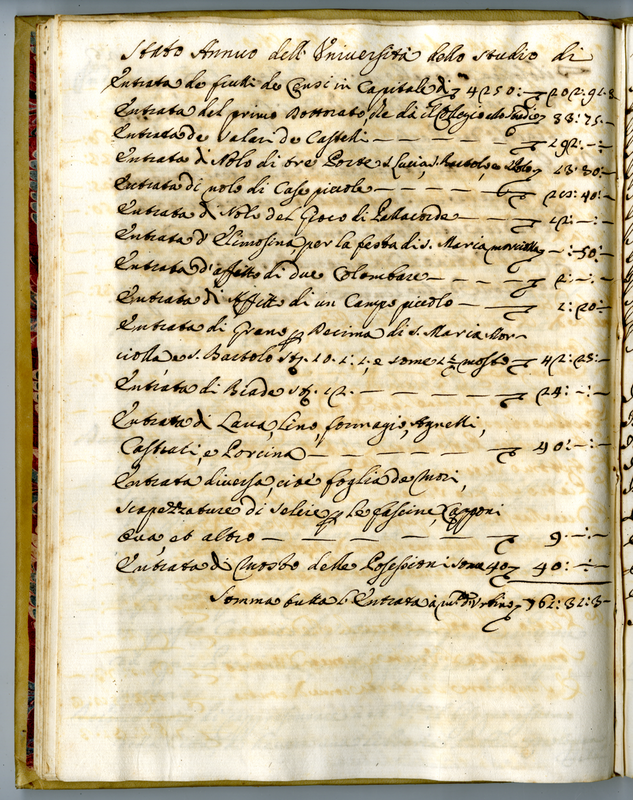 Stato Annuo dell'Università dello studio di
Entrata de frutti de Censi in Capitale di 4250: 202:91:8
Entrata del primo Dottorato, che dà il Collegio allo studio 83:75:-
Entrata de Salari de Castelli 192:-:-
Entrata di Nolo di tre Porte S. Lucia, S. Bartolo, e 13:30:-
Entrata di nolo di Case piccole 201:40:-
Entrata di Nolo del Gioco di Pallacorde 12:-:-
Entrata d'Elimosina per la festa di S. Maria morciolla -:50:-
Entrata d'affitto di due Colombare 2:-:-
Entrata di Affitto di un Campo piccolo 1:20:-
Entrata di Grano p Decima di S. Maria Mor-
ciolla e S. Bartolo St. 10.1:1, e some 1½ mosto 42:25:-
Entrata di Biade St. 12. 24:-:-
Entrata di Lana, Lino, formagio, Agnelli,
Castrati, e Porcina 40:-:-
Entrata diversa, cioè foglia de Mori,
scapezzature di Selcie p le fascine, Capponi
ova, et altro 9.-:-
Entrata di Mosto delle Posessioni Some 40 40:-:-
Somma tutta l'Entrata à m.ta d'Urbino 761:31:3